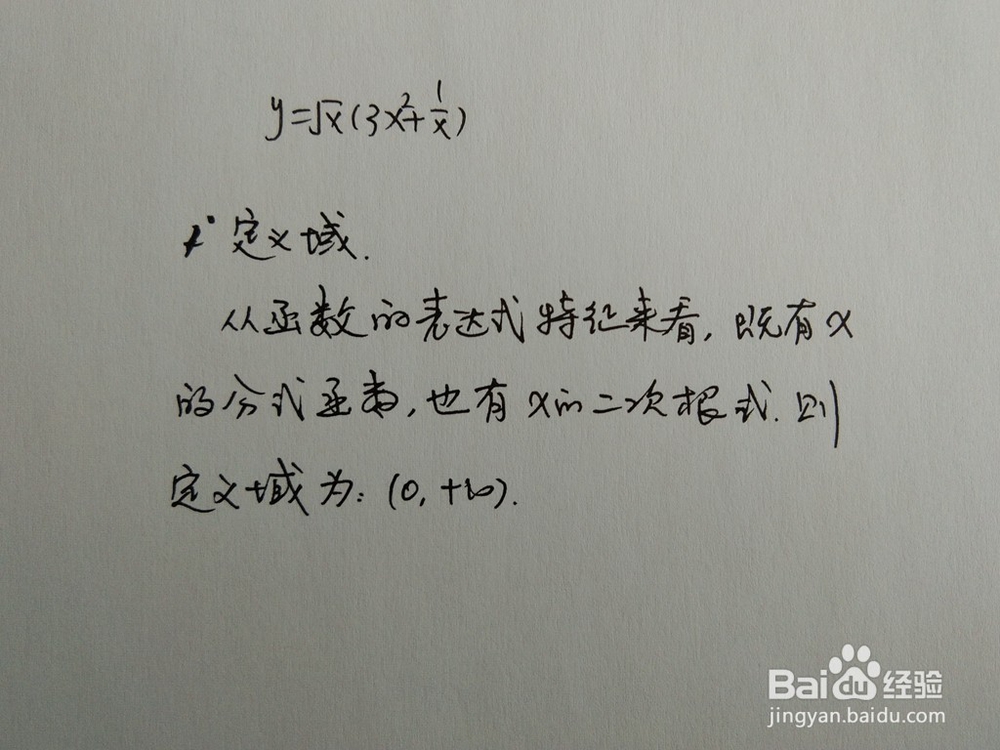 y=√x(3x²+1/x)
定义域.
从函数的表达式特征来看,既有x
的分式函数,也有x的二次根式.则
定义域为:(0,+∞).
Baidu经验
jingyan.baidu.com